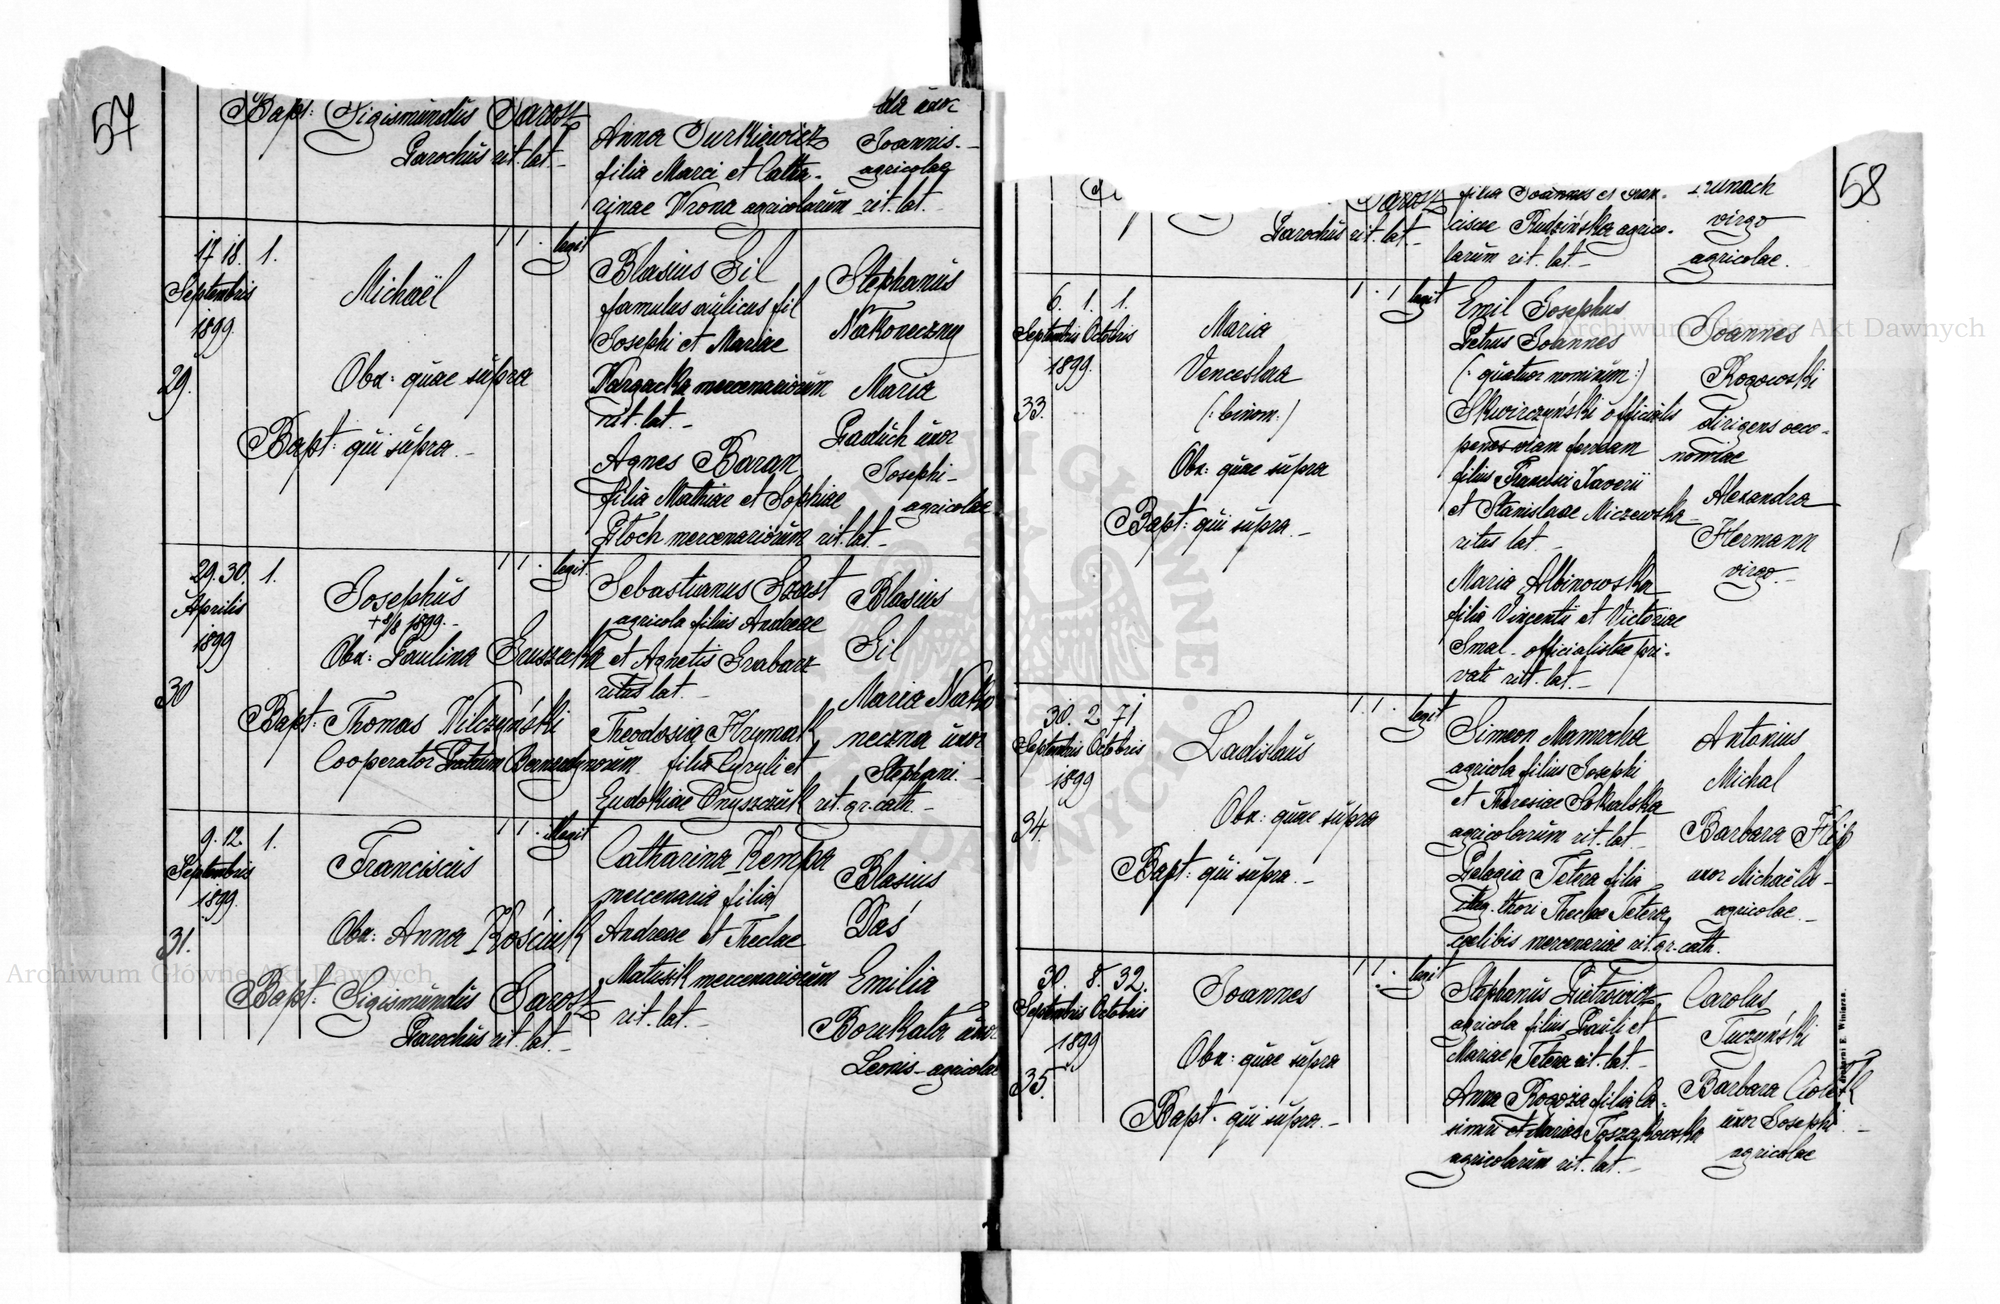 57
Bapt: Sigismundus Jarosz
Parochus rit. lat. –
Anna Turkiewicz
filia Marci et Catha-
rinae Wrona agricolarum rit. lat. –
uxor
Joannis –
agricolae
17 18. 1. 1 1. legit
Septembris
1899
29.
Michaël
Obx: quae supra
Bapt: qui supra. –
Blasius Gil
famulus aulicus fil
Josephi et Mariae
mercenariorum
rit. lat. –
Agnes Baran
filia Mathiae et Sophiae
Ploch mercenariorum rit. lat. –
Stephanus
Nakoneczny
Maria
Paduch uxor
Josephi –
agricolae
29. 30. 1. 1 1. legit.
Aprilis
1899
30
Josephus
+ 8/8 1899. –
Obx: Paulina Gruszecka
Bapt: Thomas Wilczyński
Cooperator Patrum Bernardynorum
Sebastianus Szast
agricola filius Andreae
et Agnetis Grabarz
ritus lat. –
Theodosia Hrymak
filia Cyryli et
Eudokiae Onyszczuk rit. gr. cath. –
Blasius
Gil
Maria Nako
neczna uxor
Stephani. –
9. 12. 1. 1 1. illegit
Septembris
1899.
31.
Franciscus
Obx: Anna Kościuk
Bapt: Sigismundus Jarosz
Parochus rit. lat. –
Catharina Kempa
mercenaria filia
Andreae et Theclae
Matusik mercenariorum
rit. lat. –
Blasius
Daś
Emilia
Borukata uxor
Leonis – agricolae
58
Jarosz
Parochus rit. lat. –
filia Joannis et Fran-
ciscae Rudzińska agrico-
larum rit. lat. –
virgo
agricolae.
6. 1. 1. 1 1 legit
Septembris Octobris
1899.
33.
Maria
Venceslaa
(: binom :)
Obx: quae supra
Bapt: qui supra. –
Emil Josephus
Petrus Joannes
(: quatuor nominum :)
Skwirczyński officialis
penes viam ferream
filius Francisci Xaverii
et Stanislaae Miczewska
ritus lat. –
Maria Albinowska
filia Vincentii et Victoriae
Smal – officialistae pri-
vati rit. lat. –
Joannes
Rogowski
dirigens oeco-
nomiae
Alexandra
Hermann
virgo –
30. 2 71 1. 1. legit
Septembris Octobris
1899
34.
Ladislaus
Obx: quae supra
Bapt: qui supra. –
Simeon Mamrocha
agricola filius Josephi
et Theresiae Sokalska
agricolarum rit. lat. –
Pelagia Tetera filia
illeg. thori Theclae Tetera
coelibis mercenariae rit. gr. cath.
Antonius
Michal
Barbara Filip
uxor Michaëlis –
agricolae. –
30. 8. 32. 1. 1. legit
Septembris Octobris
1899
35.
Joannes
Obx: quae supra
Bapt: qui supra. –
Stephanus Pietrowicz
agricola filius Pauli et
Mariae Tetera rit. lat. –
Anna Rogoza filia Ca-
simiri et Mariae Toszakowska
agricolarum rit. lat. –
Carolus
Tuczyński
Barbara Ciosek
uxor Josephi –
agricolae
Z drukarni E. Winiarza.
Archiwum Główne Akt Dawnych
Archiwum Główne Akt Dawnych